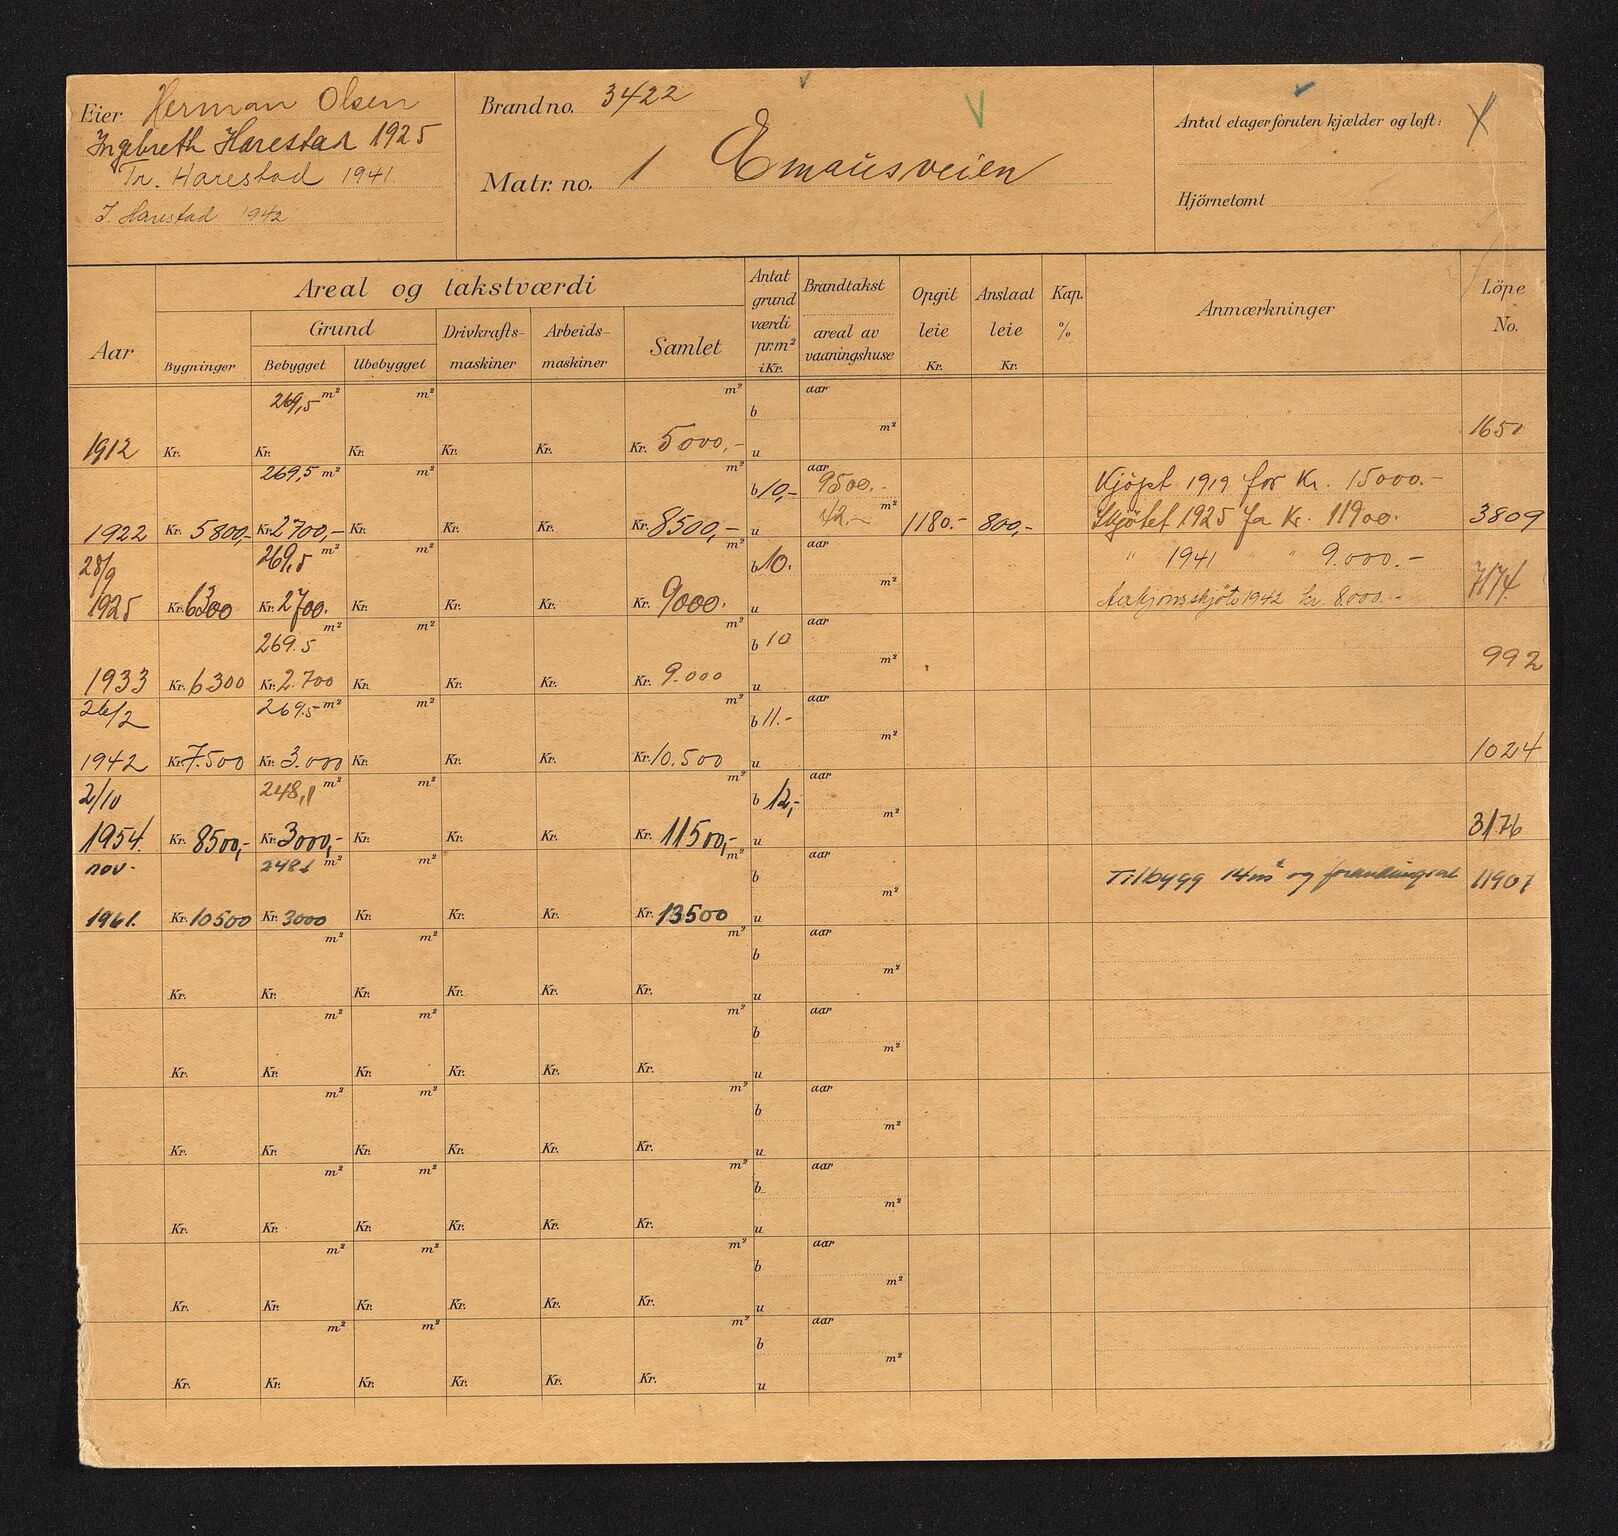 Eier Herman Olsen
Ingebreth Harestad 1925
Tr. Harestad 1941.
I. Harestad 1942
Brandno. 3422
Matr. no. 1 Emausveien
Antal etager foruten kjælder og loft:
Hjörnetomt
Aar
Areal og takstværdi
Bygninger
Grund
Bebygget Ubebygget
Drivkrafts-maskiner
Arbeids-maskiner
Samlet
Antat grund værdi pr. m² i Kr.
Brandtakst
areal av vaaningshuse
Opgit leie Kr.
Anslaat leie Kr.
Kap. %
Anmærkninger
Löpe No.
269,5 m² m² m² aar
b m²
1912 Kr. Kr. Kr. Kr. Kr. Kr. 5000,- u 1651
269,5 m² m² m² aar Kjöpt 1919 for Kr. 15000.-
b 10,- 9500.- m²
1922 Kr. 5800,- Kr. 2700,- Kr. Kr. 8500,- u 42.- 1180.- 800,- Skjötet 1925 fa Kr. 11900. 3809
28/9 269,5 m² m² m² b 10. aar m² " 1941 " " 9.000.-
1925 Kr. 6300 Kr. 2700. Kr. Kr. Kr. Kr. 9000. u 1942 kr. 8.000.- 7174
269.5 m² m² m² b 10 aar m²
1933 Kr. 6300 Kr. 2.700 Kr. Kr. Kr. Kr. 9.000 u 992
26/2 269.5 m² m² m² b 11.- aar m²
1942 Kr. 7.500 Kr. 3.000 Kr. Kr. Kr. Kr. 10.500 u 1024
2/10 248,1 m² m² m² b 12,- aar m²
1954. Kr. 8500,- Kr. 3000,- Kr. Kr. Kr. Kr. 11500,- u 3176
nov. 2481 m² m² m² b aar m² Tilbygg 14m² og 11907
1961. Kr. 10500 Kr. 3000 Kr. Kr. Kr. Kr. 13500 u
m² m² m² b aar m²
Kr. Kr. Kr. Kr. Kr. Kr. u
m² m² m² b aar m²
Kr. Kr. Kr. Kr. Kr. Kr. u
m² m² m² b aar m²
Kr. Kr. Kr. Kr. Kr. Kr. u
m² m² m² b aar m²
Kr. Kr. Kr. Kr. Kr. Kr. u
m² m² m² b aar m²
Kr. Kr. Kr. Kr. Kr. Kr. u
m² m² m² b aar m²
Kr. Kr. Kr. Kr. Kr. Kr. u